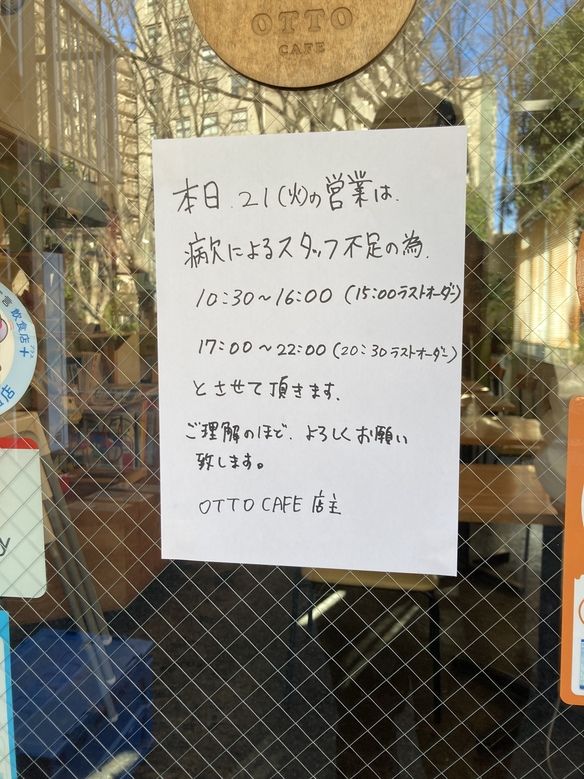 OTTO
CAFE
本日、21(火)の営業は、
病欠によるスタッフ不足の為、
10:30～16:00 (15:00ラストオーダー)
17:00～22:00 (20:30ラストオーダー)
とさせて頂きます。
ご理解のほど、よろしくお願い
致します。
OTTO CAFE 店主
言 飲食店+
店